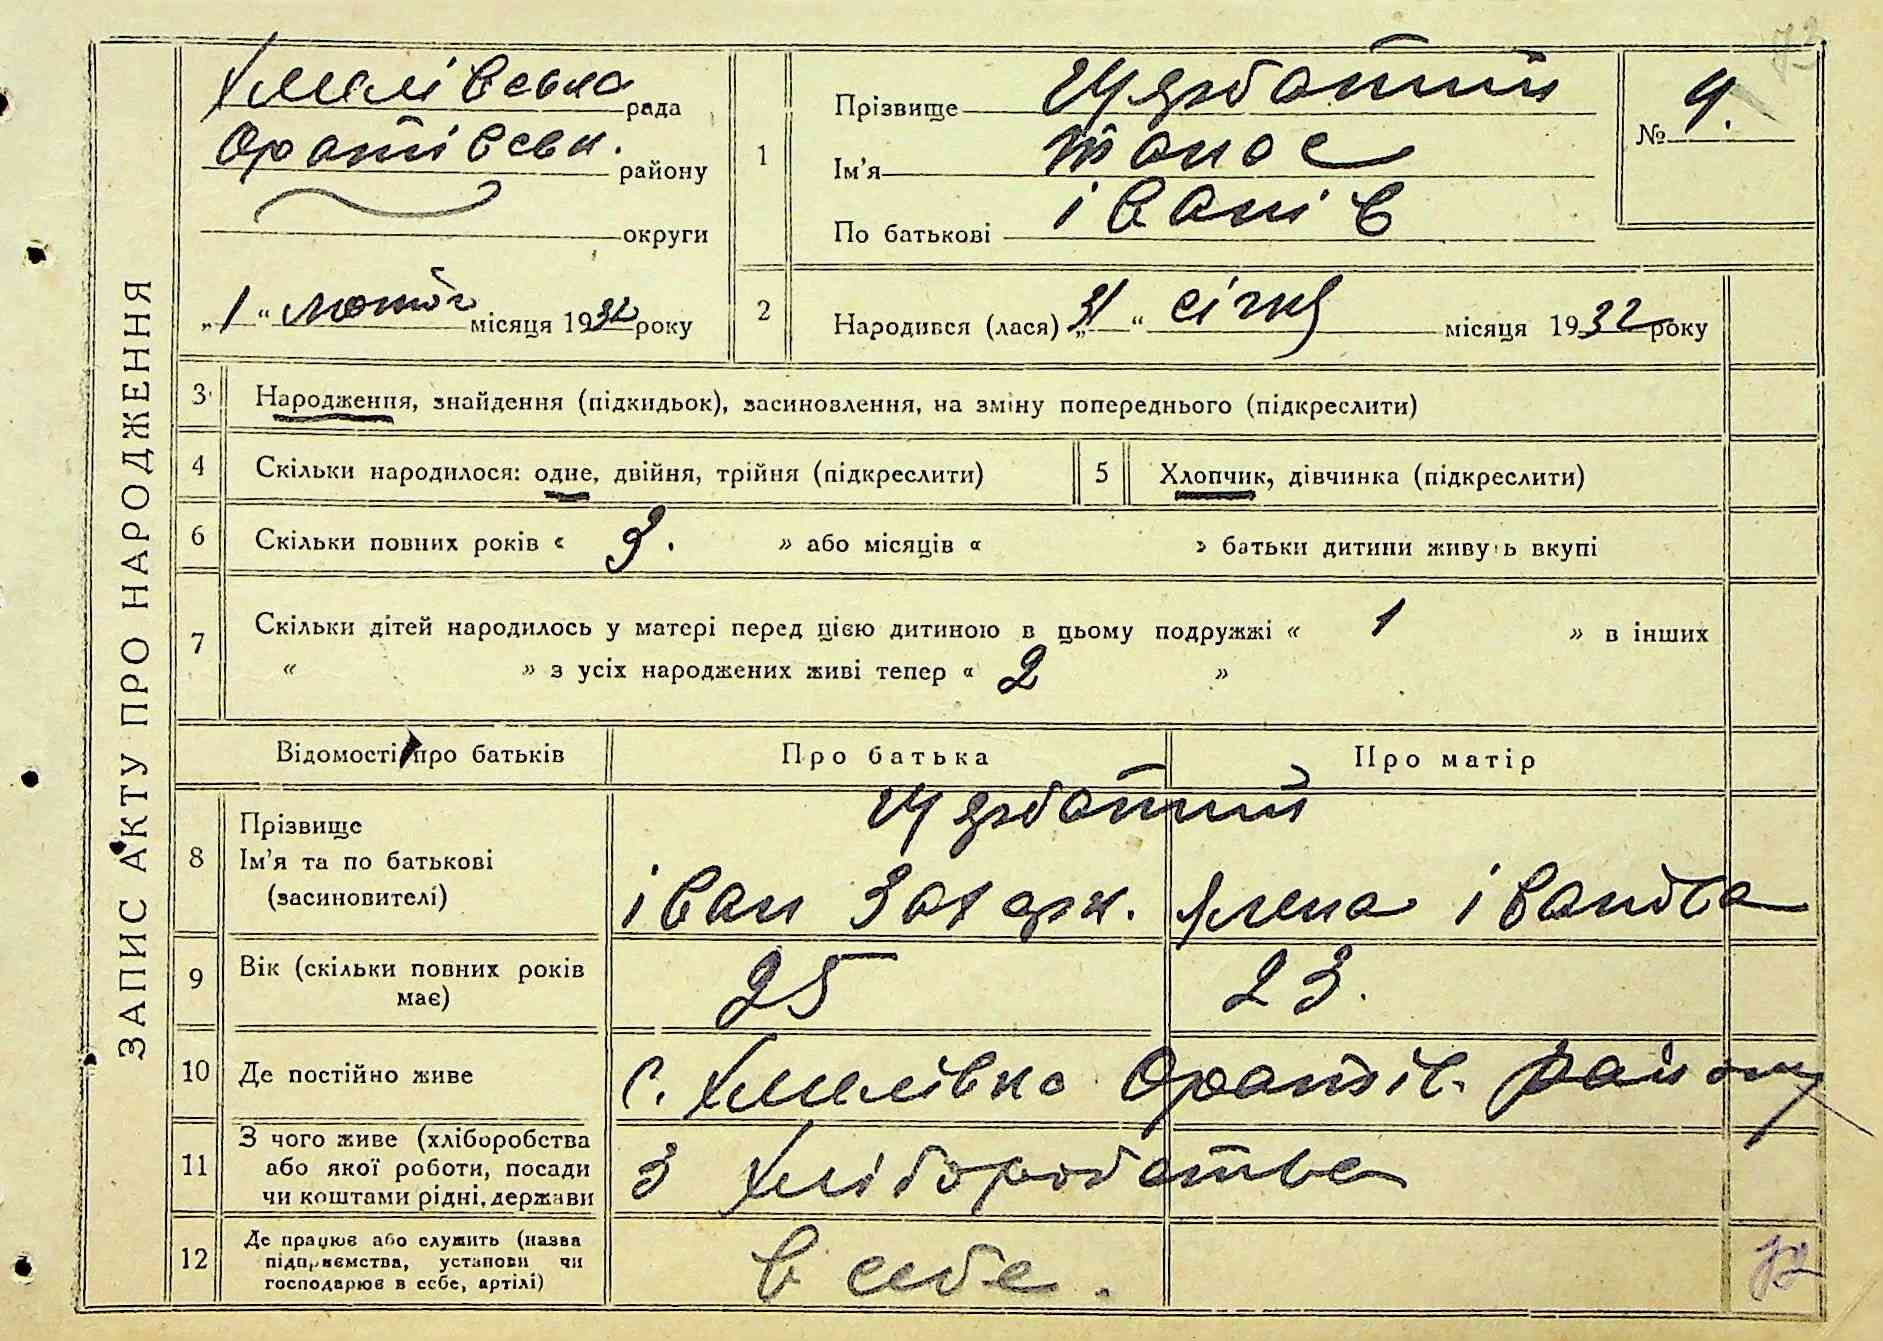 ЗАПИС АКТУ ПРО НАРОДЖЕННЯ
Хмелівська рада
Оратівськ. району
округи
„1“ лютого місяця 1932 року
1
Прізвище Щербатий
Ім'я Танас
По батькові Іванів
№ 4.
2
Народився (лася) „31“ січня місяця 1932 року
3 Народження, знайдення (підкидьок), засиновлення, на зміну попереднього (підкреслити)
4 Скільки народилося: одне, двійня, трійня (підкреслити)
5 Хлопчик, дівчинка (підкреслити)
6 Скільки повних років « 3. » або місяців « » батьки дитини живуть вкупі
7 Скільки дітей народилось у матері перед цією дитиною в цьому подружжі « 1 » в інших
« » з усіх народжених живі тепер « 2 »
Відомості про батьків Про батька Про матір
8 Прізвище Щербатий
Ім'я та по батькові Іван Захарк. Ялена Іванівна
(засиновителі)
9 Вік (скільки повних років має) 25 23.
10 Де постійно живе с. Хмелівка Оратів. району
11 З чого живе (хліборобства
або якої роботи, посади з хліборобства
чи коштами рідні, держави
12 Де працює або служить (назва
підприємства, установи чи в себе.
господарює в себе, артілі)
72